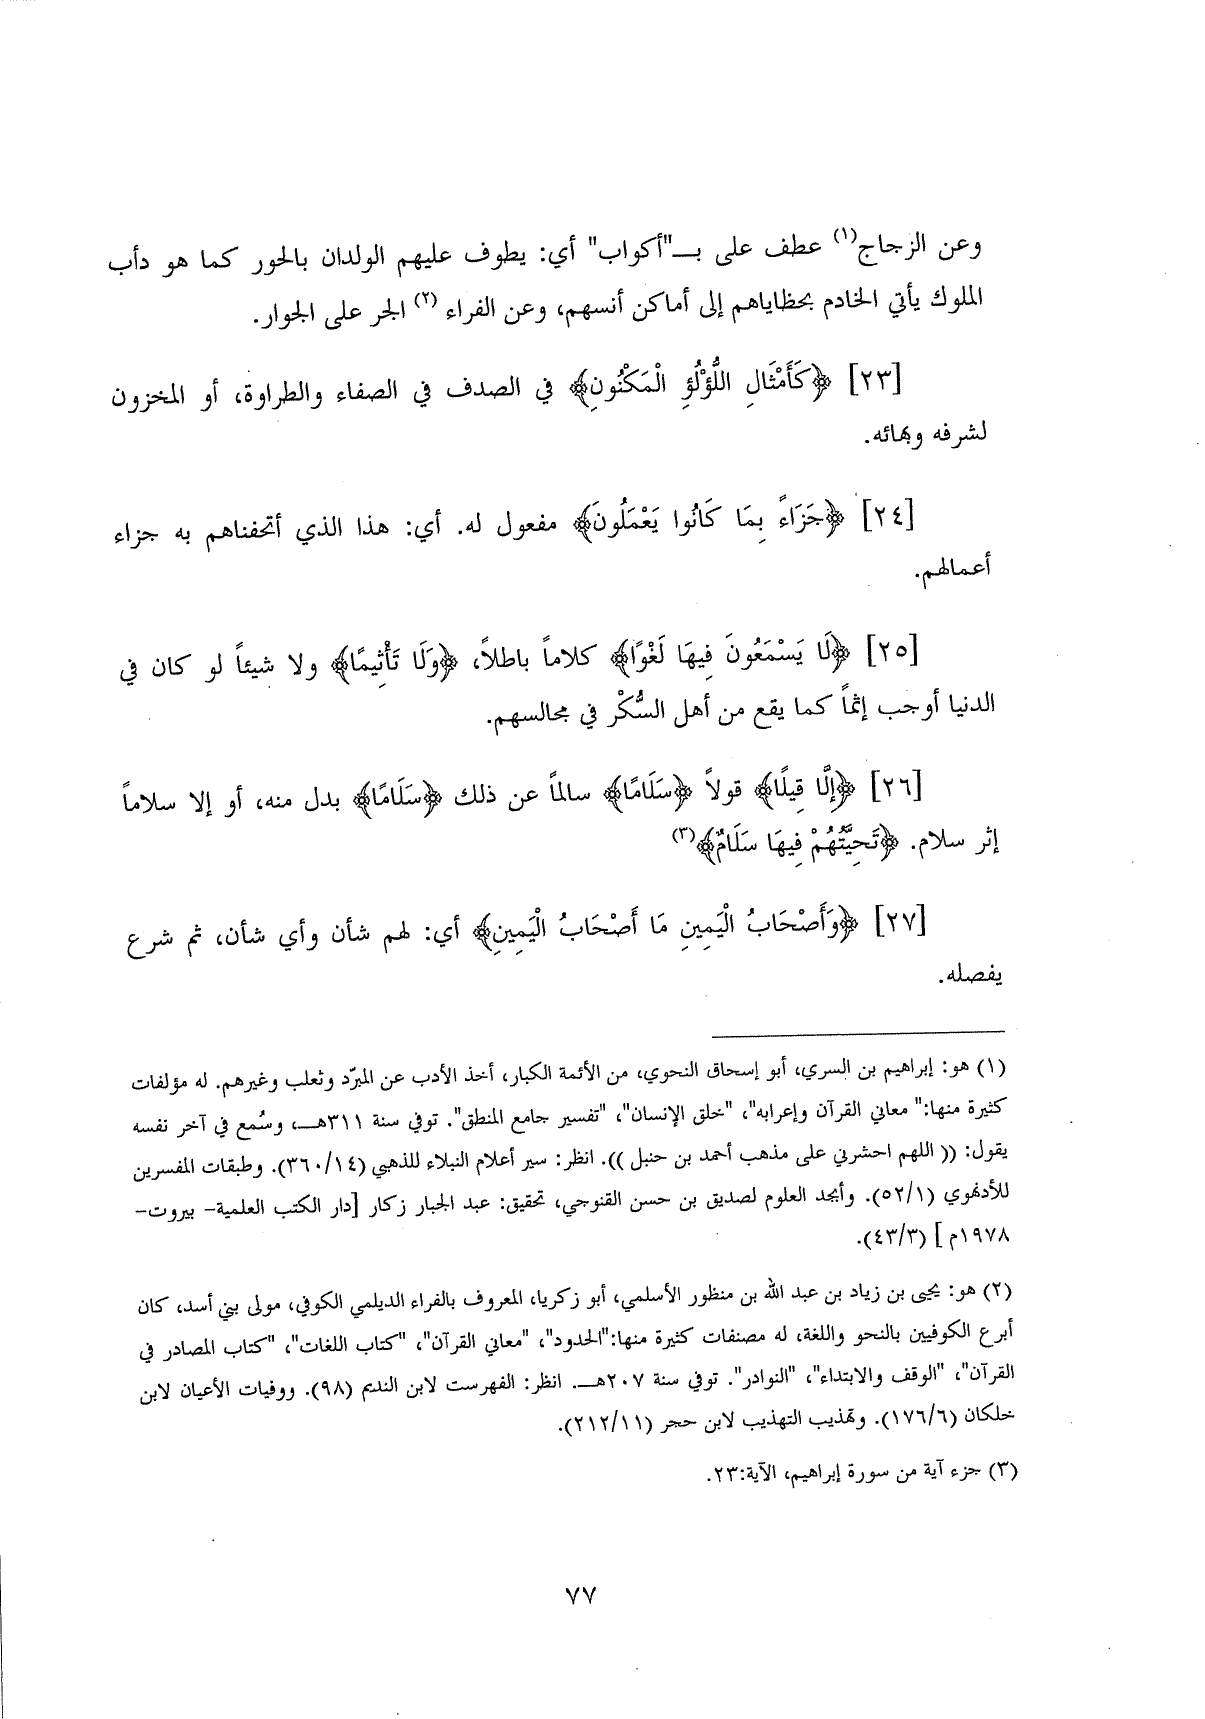 وعن الزجاج(١) عطف على بـ"أكواب" أي: يطوف عليهم الولدان بالحور كما هو دأب
الملوك يأتي الخادم بحظاياهم إلى أماكن أنسهم، وعن الفراء (٢) الجر على الجوار.
[٢٣] ﴿كَأَمْثَالِ اللُّؤْلُؤِ الْمَكْنُونِ﴾ في الصدف في الصفاء والطراوة، أو المخزون
لشرفه وبهائه.
[٢٤] ﴿جَزَاءً بِمَا كَانُوا يَعْمَلُونَ﴾ مفعول له. أي: هذا الذي أتحفناهم به جزاء
أعمالهم.
[٢٥] ﴿لَا يَسْمَعُونَ فِيهَا لَغْوًا﴾ كلاماً باطلاً، ﴿وَلَا تَأْثِيمًا﴾ ولا شيئاً لو كان في
الدنيا أوجب إثماً كما يقع من أهل السُّكْر في مجالسهم.
[٢٦] ﴿إِلَّا قِيلًا﴾ قولاً ﴿سَلَامًا﴾ سالماً عن ذلك ﴿سَلَامًا﴾ بدل منه، أو إلا سلاماً
إثر سلام. ﴿تَحِيَّتُهُمْ فِيهَا سَلَامٌ﴾(٣)
[٢٧] ﴿وَأَصْحَابُ الْيَمِينِ مَا أَصْحَابُ الْيَمِينِ﴾ أي: لهم شأن وأي شأن، ثم شرع
يفصله.
(١) هو: إبراهيم بن السري، أبو إسحاق النحوي، من الأئمة الكبار، أخذ الأدب عن المبرّد وثعلب وغيرهم. له مؤلفات
كثيرة منها:" معاني القرآن وإعرابه"، "خلق الإنسان"، "تفسير جامع المنطق". توفي سنة ٣١١هـ، وسُمع في آخر نفسه
يقول: (( اللهم احشرني على مذهب أحمد بن حنبل )). انظر: سير أعلام النبلاء للذهبي (٣٦٠/١٤). وطبقات المفسرين
للأدنهوي (٥٢/١). وأبجد العلوم لصديق بن حسن القنوجي، تحقيق: عبد الجبار زكار [دار الكتب العلمية- بيروت-
١٩٧٨م ] (٤٣/٣).
(٢) هو: يحيى بن زياد بن عبد الله بن منظور الأسلمي، أبو زكريا، المعروف بالفراء الديلمي الكوفي، مولى بني أسد، كان
أبرع الكوفيين بالنحو واللغة، له مصنفات كثيرة منها:"الحدود"، "معاني القرآن"، "كتاب اللغات"، "كتاب المصادر في
القرآن"، "الوقف والابتداء"، "النوادر". توفي سنة ٢٠٧هـ. انظر: الفهرست لابن النديم (٩٨). ووفيات الأعيان لابن
خلكان (١٧٦/٦). وتهذيب التهذيب لابن حجر (٢١٢/١١).
(٣) جزء آية من سورة إبراهيم، الآية:٢٣.
٧٧